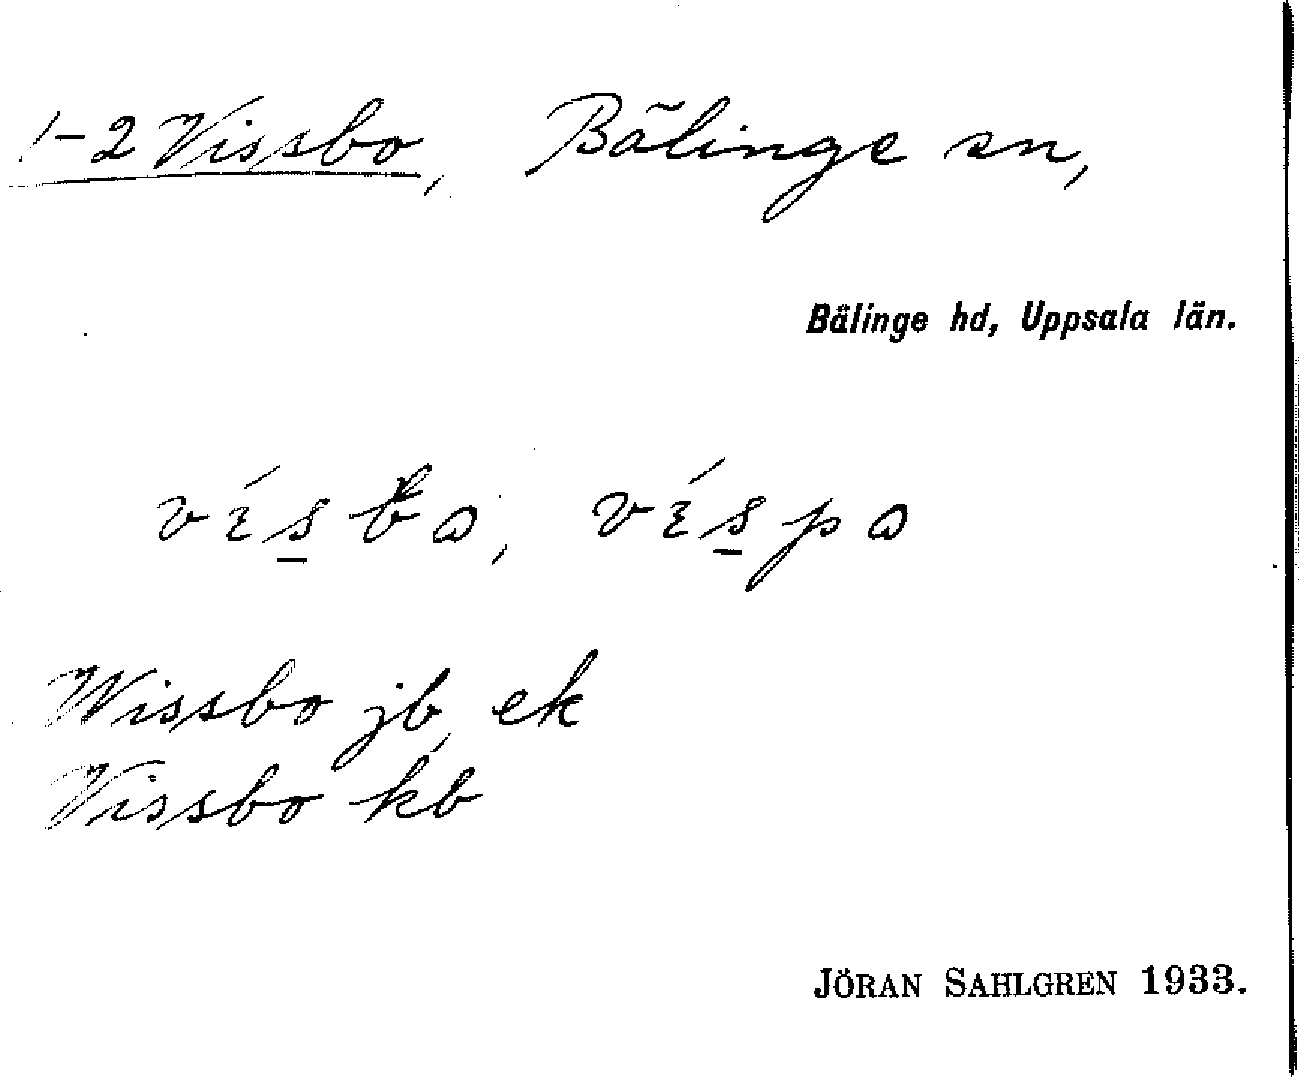 1-2 Vissbo, Bälinge sn,
Bälinge hd, Uppsala län.
vɩ́s̠ƀɷ, vɩ́s̠pɷ
Wissbo jb, ek
Vissbo kb
JÖRAN SAHLGREN 1933.